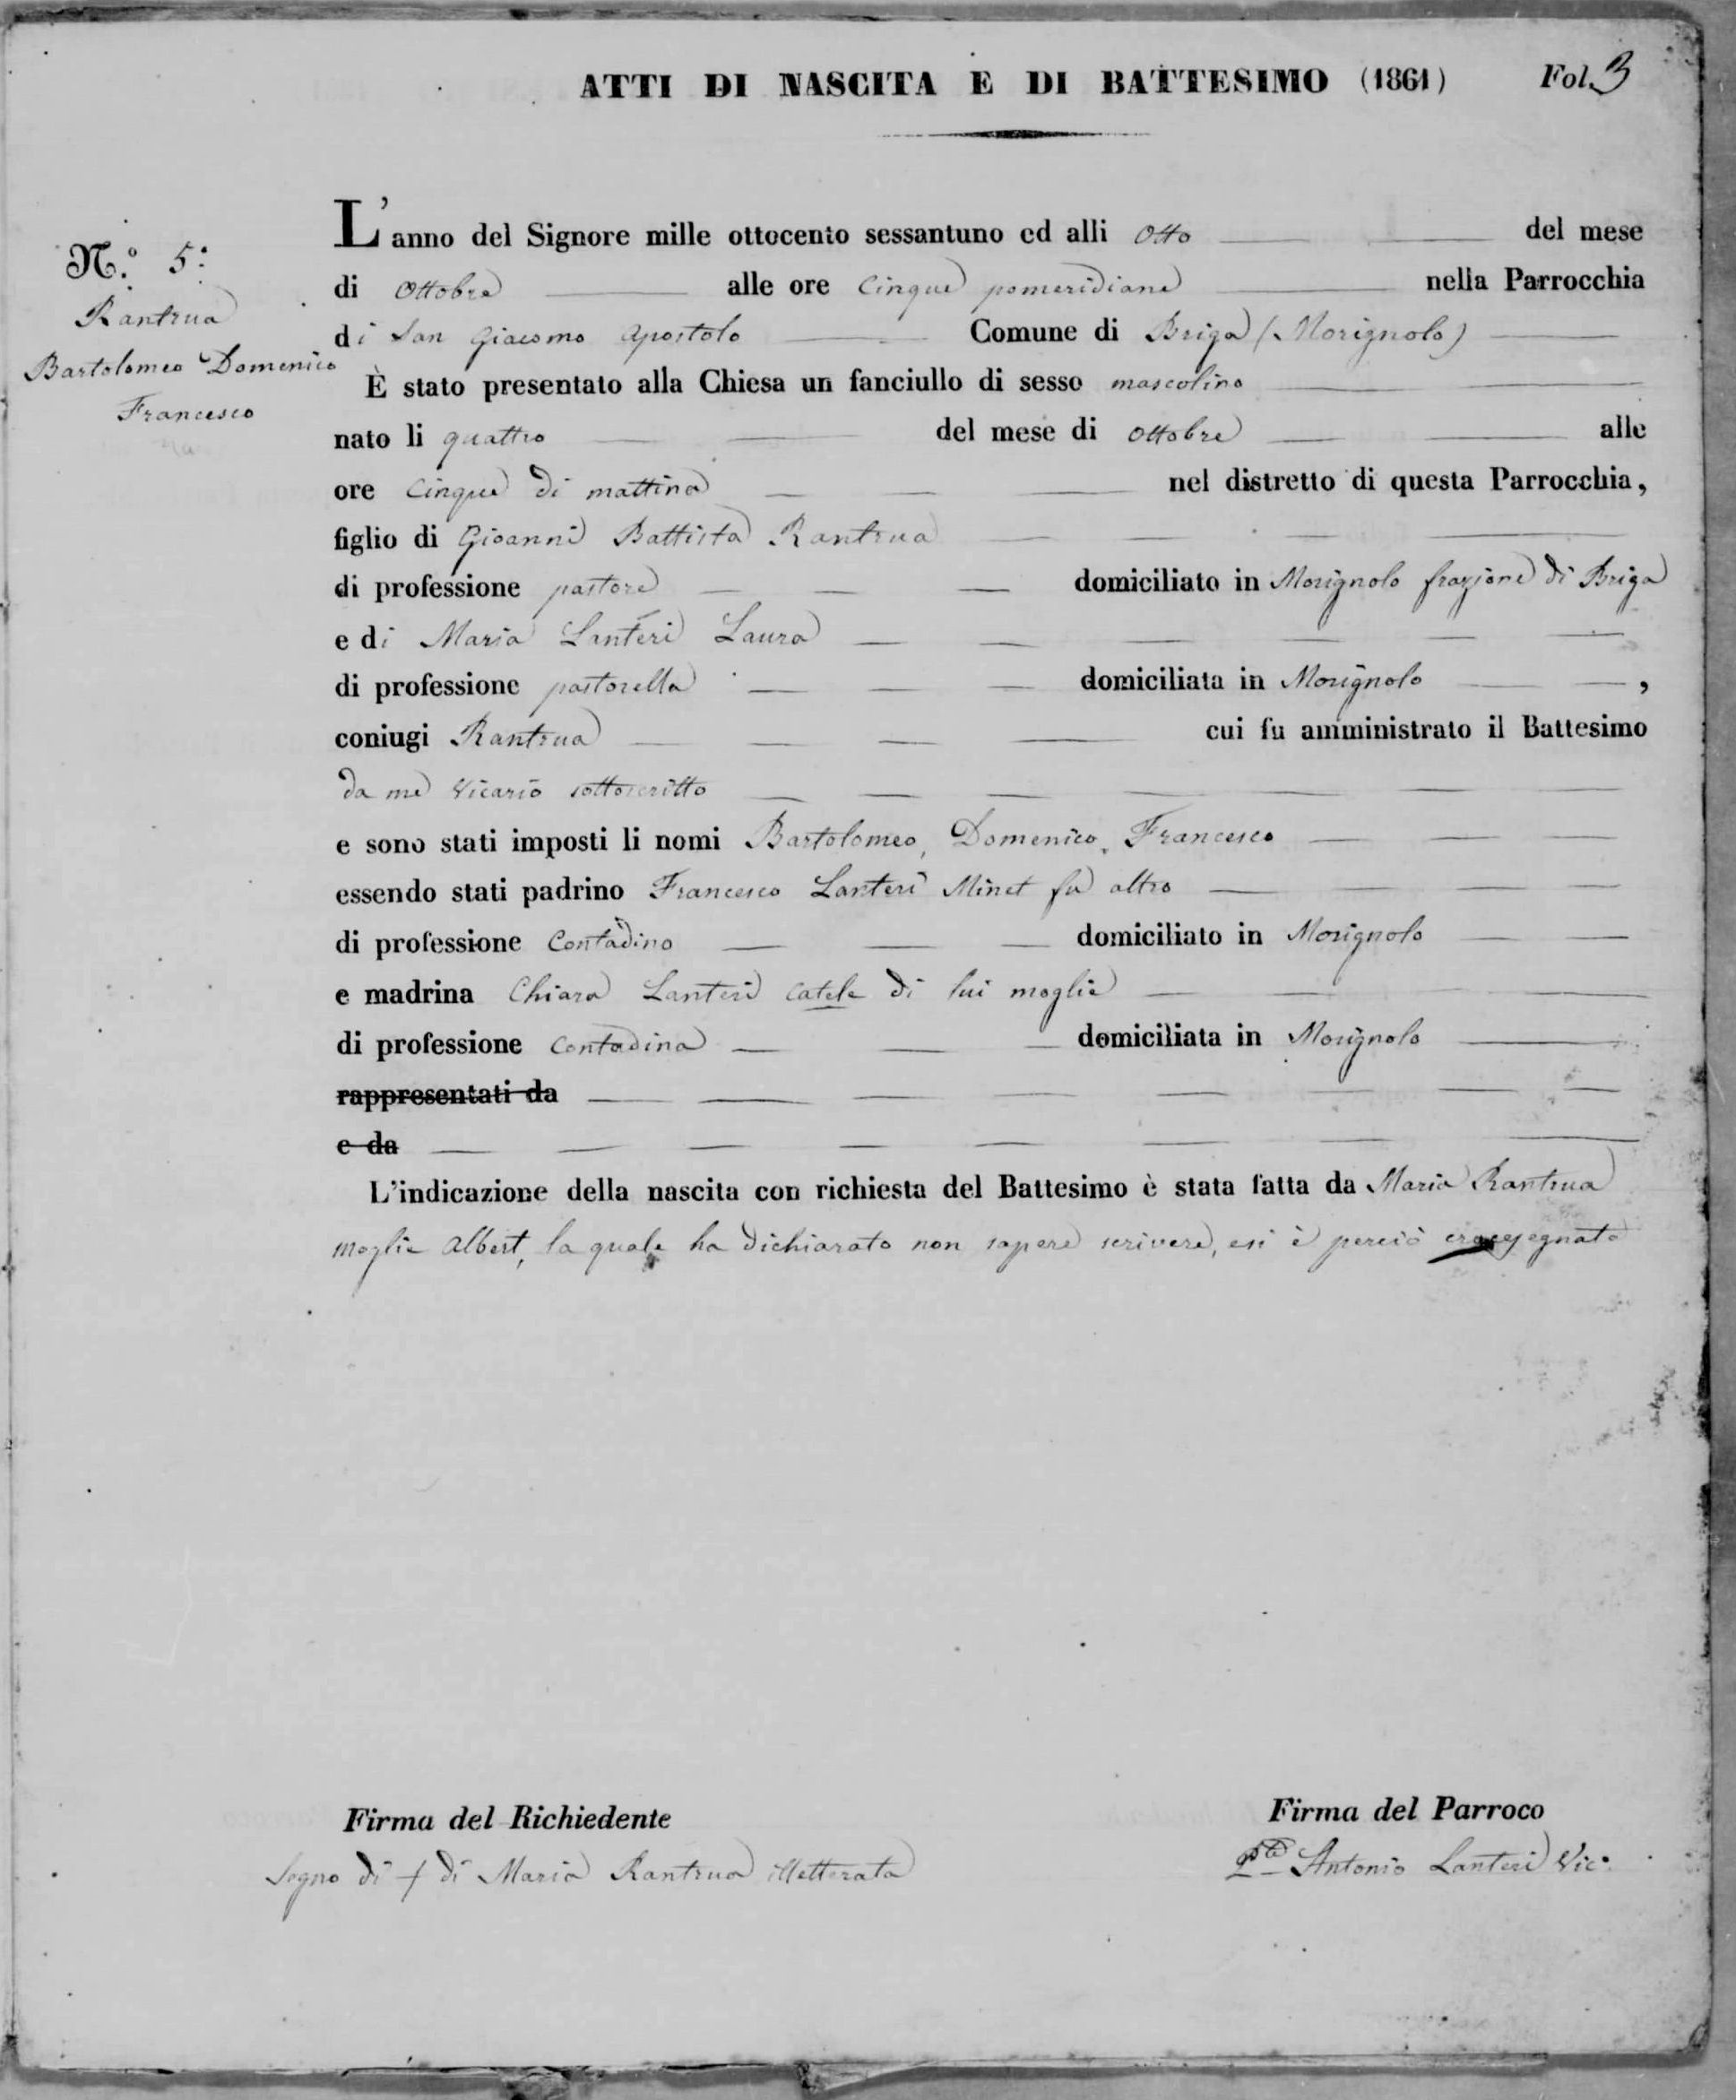 ATTI DI NASCITA E DI BATTESIMO (1861) Fol. 3
N.º 5:
Rantrua
Bartolomeo Domenico
Francesco
L'anno del Signore mille ottocento sessantuno ed alli otto del mese
di ottobre alle ore cinque pomeridiane nella Parrocchia
di San Giacomo Apostolo Comune di Briga (Morignolo)
È stato presentato alla Chiesa un fanciullo di sesso mascolino
nato li quattro del mese di ottobre alle
ore cinque di mattina nel distretto di questa Parrocchia,
figlio di Gioanni Battista Rantrua
di professione pastore domiciliato in Morignolo frazione di Briga
e di Maria Lanteri Laura
di professione pastorella domiciliata in Morignolo,
coniugi Rantrua cui fu amministrato il Battesimo
da me Vicario sottoscritto
e sono stati imposti li nomi Bartolomeo, Domenico, Francesco
essendo stati padrino Francesco Lanteri Minet fu altro
di professione Contadino domiciliato in Morignolo
e madrina Chiara Lanteri Catele di lui moglie
di professione Contadina domiciliata in Morignolo
rappresentati da
e da
L'indicazione della nascita con richiesta del Battesimo è stata fatta da Maria Rantrua
moglie Albert, la quale ha dichiarato non sapere scrivere, esi è perciò crocesegnata
Firma del Richiedente
Segno di + di Maria Rantrua illetterata
Firma del Parroco
Pte Antonio Lanteri Vic.